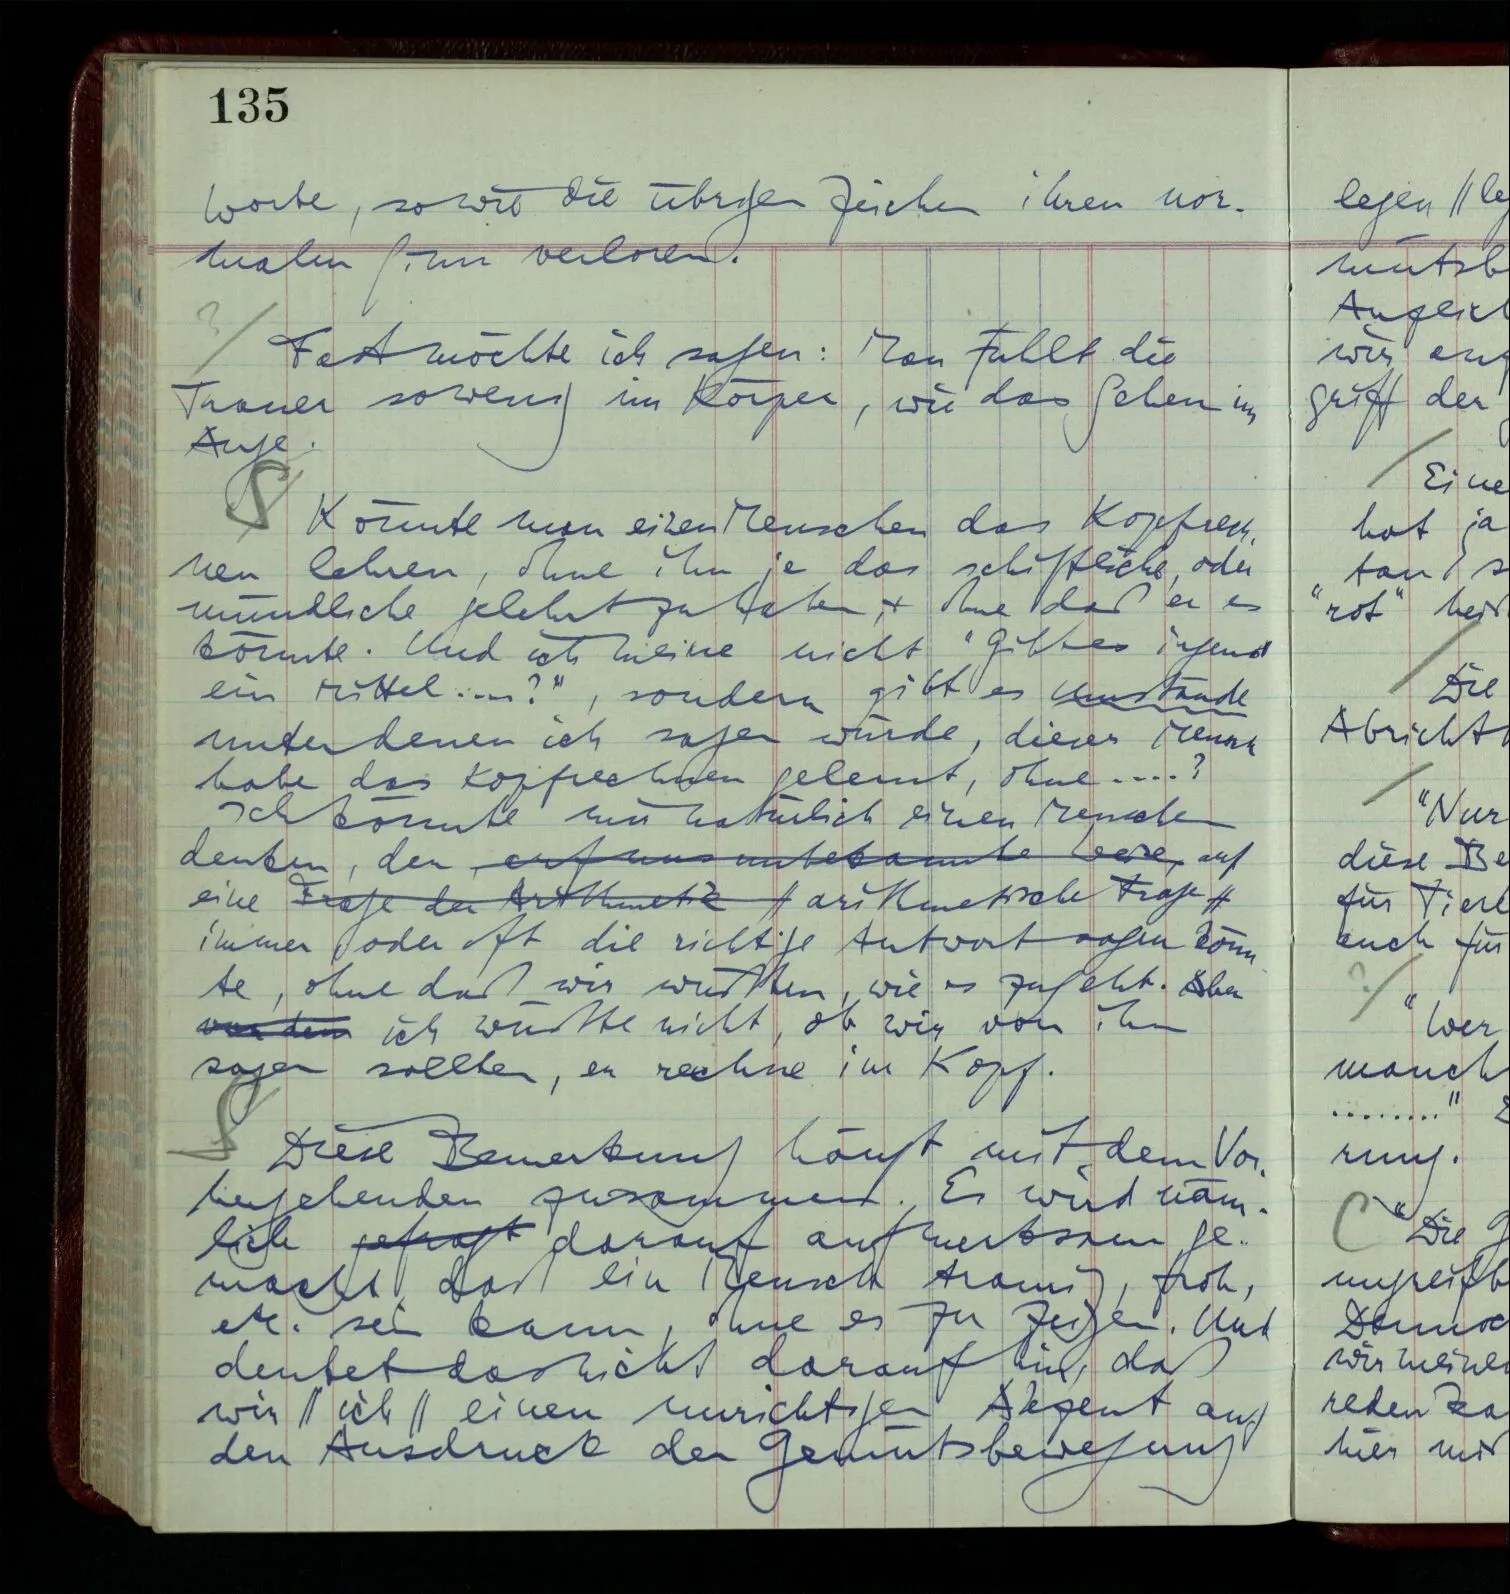 135
Worte, sowie die übrigen Zeichen ihren nor-
malen Sinn verloren.
?/
Fast möchte ich sagen: Man fühlt die
Trauer sowenig im Körper, wie das Sehen im
Auge.
S
Könnte man einen Menschen das Kopfrech-
nen lehren, ohne ihn je das schriftliche, oder
mündliche gelehrt zu haben, + ohne daß er es
könnte. Und ich meine nicht "Gibt es irgend
ein Mittel ....?", sondern gibt es Umstände
unter denen ich sagen würde, dieser Mensch
habe das Kopfrechnen gelernt, ohne ....?
Ich könnte mir natürlich einen Menschen
denken, der auf uns unbekannte Weise, auf
eine Frage der Arithmetik // arithmetische Frage //
immer, oder oft die richtige Antwort sagen könn-
te, ohne daß wir wüßten, wie es zugeht. Aber
von dem ich wüßte nicht, ob wir von ihm
sagen sollten, er rechne im Kopf.
S
Diese Bemerkung hängt mit dem Vor-
hergehenden zusammen. Es wird näm-
lich gefragt darauf aufmerksam ge-
macht, daß ein Mensch traurig, froh,
etc. sein kann, ohne es zu zeigen. Und
deutet das nicht darauf hin, daß
wir // ich // einen unrichtigen Akzent auf
den Ausdruck der Gemütsbewegung
legen // le
mütsb
Angleich
wir
griff der
/
Eine
hat ja
"rot"
/
Die
Abricht
/
"Nur
diese Be
für Tiere
auch für
?/
"Wer
manch
........"
rung.
C
"Die g
ungreifb
Dennoc
wir meinen
reden ka
hier mi